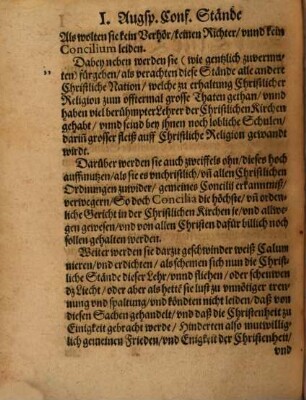 I. Augſp. Conf. Stände
Als wolten ſie kein Verhör/ keinen Richter/ vnnd kein
Concilium leiden.
Dabey neben werden ſie (wie gentzlich zuvermu-
ten) fürgeben/ als verachten dieſe Stände alle andere
Chriſtliche Nation/ welche zu erhaltung Chriſtlicher
Religion zum offtermal groſſe Thaten gethan/ vnnd
haben viel berühmpter Lehrer der Chriſtlichen Kirchen
gehabt/ vnnd ſeind bey ihnen noch lobliche Schulen/
dariñ groſſer fleiß auff Chriſtliche Religion gewandt
wirdt.
Darüber werden ſie auch zweiffels ohn/ dieſes hoch
auffmutzen/ als ſie es vnchriſtlich/ vñ allen Chriſtlichen
Ordnungen zuwider/ gemeines Concilii erkanntnuß/
verwegern/ So doch Concilia die höchſte/ vñ ordenli-
che Gericht in der Chriſtlichen Kirchen je/ vnd allwe-
gen geweſen/ vnd von allen Chriſten dafür billich noch
ſollen gehalten werden.
Weiter werden ſie darzu geſchwinder weiß Calum
nieren/ vnd erdichten/ als ſchemen ſich nun die Chriſt-
liche Stände dieſer Lehr/ vnnd fliehen/ oder ſcheuwen
dz Liecht/ oder aber als hette ſie luſt zu vnnötiger tren-
nung vnd ſpaltung/ vnd köndten nicht leiden/ daß von
dieſen Sachen gehandelt/ vnd daß die Chriſtenheit zu
Einigkeit gebracht werde/ Hinderten alſo mutwillig-
lich gemeinen Frieden/ vnd Enigkeit der Chriſtenheit/
vnd